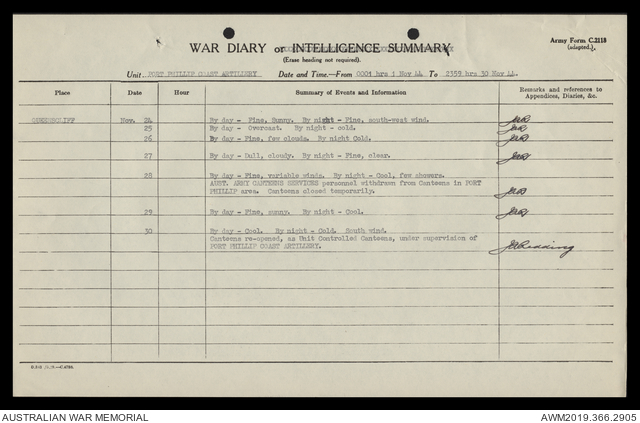 Army Form C.2118
WAR DIARY or INTELLIGENCE SUMMARY
(adapted.)
(Erase heading not required).
Unit. PORT PHILLIP COAST ARTILLERY Date and Time.—From 0001 hrs 1 Nov 44 To 2359 hrs 30 Nov 44.
Place Date Hour Summary of Events and Information Remarks and references to Appendices, Diaries, &c.
QUEENSCLIFF Nov. 24 By day - Fine, Sunny. By night - Fine, south-west wind.
25 By day - Overcast. By night - cold.
26 By day - Fine, few clouds. By night Cold.
27 By day - Dull, cloudy. By night - Fine, clear.
28 By day - Fine, variable winds. By night - Cool, few showers.
AUST. ARMY CANTEENS SERVICES personnel withdrawn from Canteens in PORT
PHILLIP area. Canteens closed temporarily.
29 By day - Fine, sunny. By night - Cool.
30 By day - Cool. By night - Cold. South wind.
Canteens re-opened, as Unit Controlled Canteens, under supervision of
PORT PHILLIP COAST ARTILLERY.
AUSTRALIAN WAR MEMORIAL AWM2019.366.2905